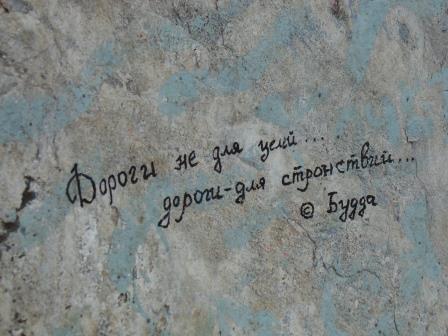 Дороги не для целй...
дороги-для стронствий...
© Будда